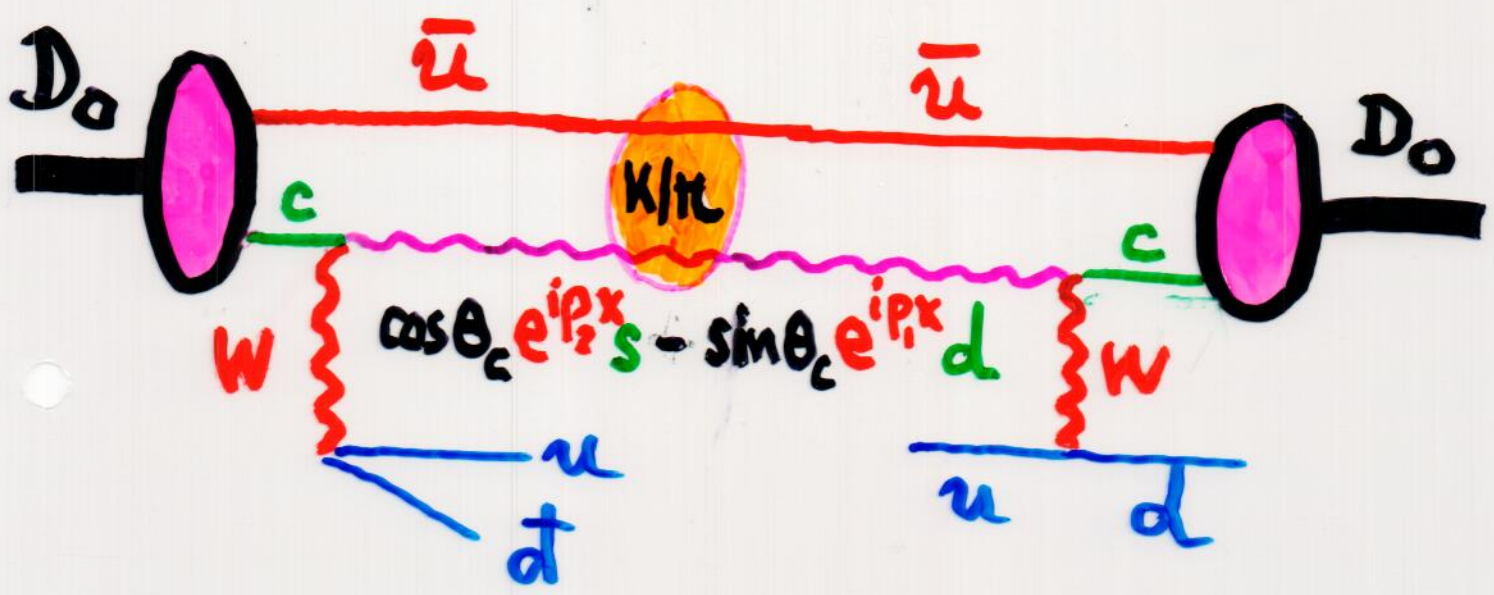 D₀ ū ū D₀
K/π
c c
W cosθ_c e^{ip₂x} s - sinθ_c e^{ip₁x} d W
u
d̄
u d